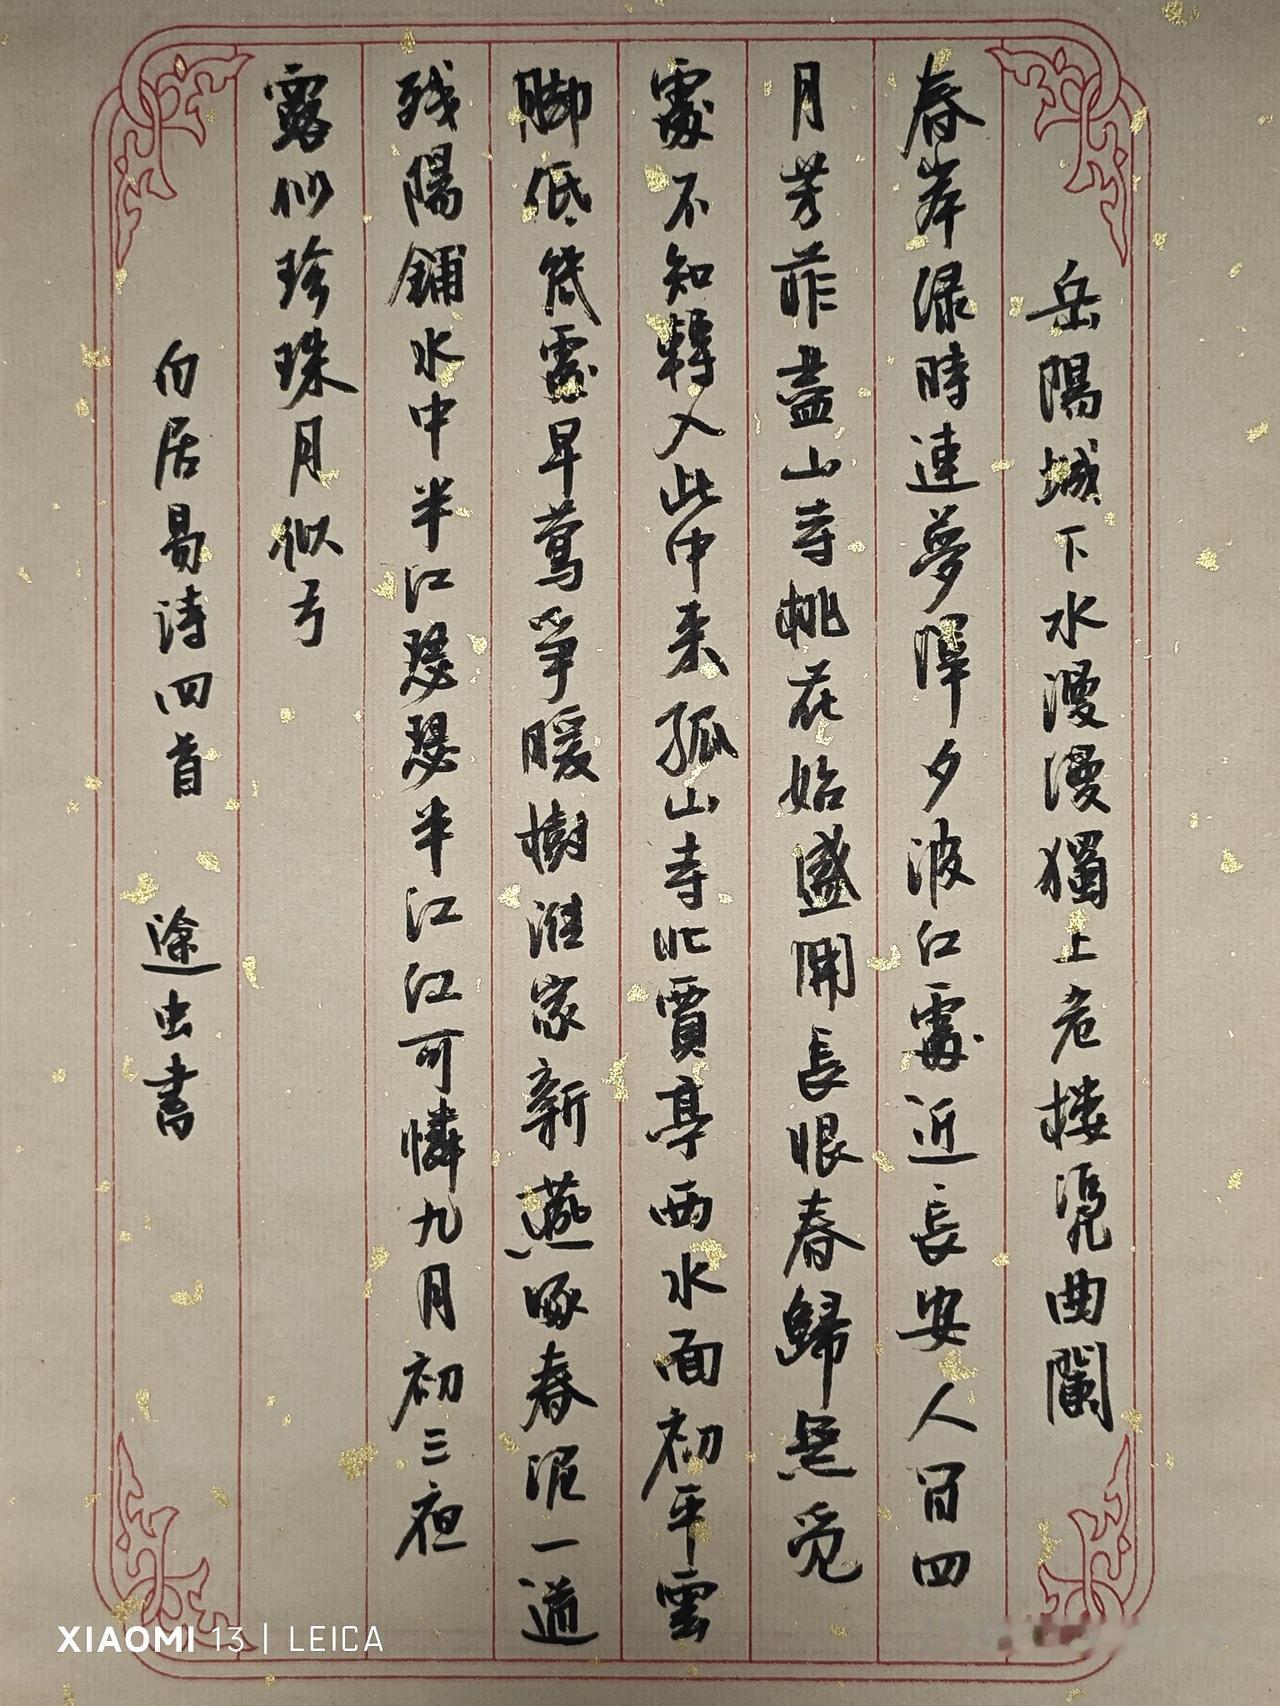 岳陽城下水漫漫獨上危楼凴曲闌
春岸渌時連夢澤夕波红處近長安人间四
月芳菲盡山寺桃花始盛開長恨春歸無觅
處不知轉入此中来孤山寺北賈亭西水面初平雲
脚低幾處早莺爭暖樹誰家新燕啄春泥一道
残陽鋪水中半江瑟瑟半江江可憐九月初三夜
露似珍珠月似弓
白居易诗四首 途虫書
XIAOMI 13 | LEICA